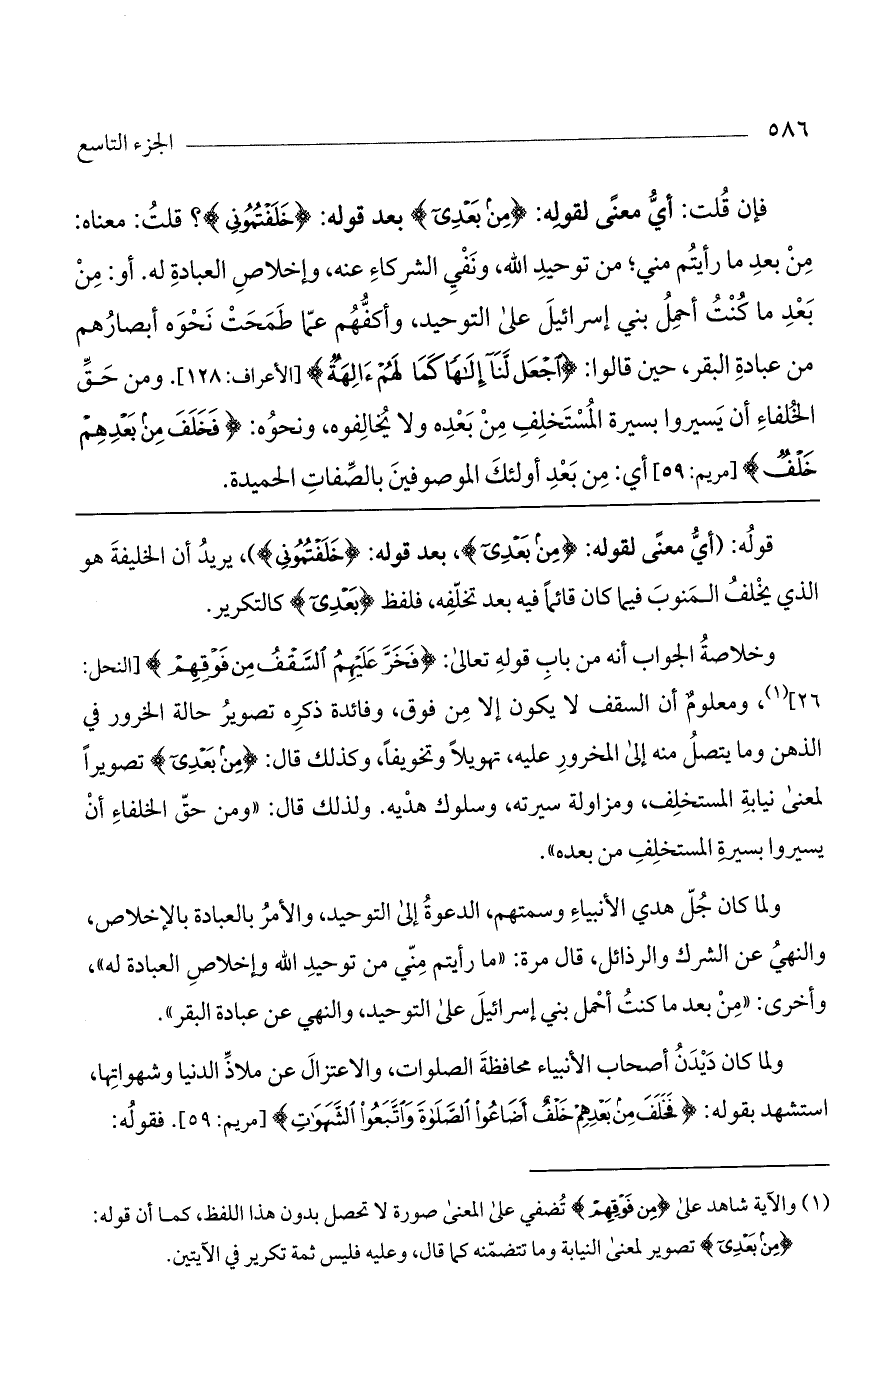 ٥٨٦ الجزء التاسع
فإن قُلت: أيُّ معنًى لقولِه: ﴿مِنۢ بَعْدِىٓ﴾ بعد قوله: ﴿خَلَفْتُمُونِى﴾؟ قلتُ: معناه:
مِنْ بعدِ ما رأيتُم مني؛ من توحيدِ الله، ونَفْيِ الشركاءِ عنه، وإخلاصِ العبادةِ له. أو: مِنْ
بَعْدِ ما كُنْتُ أحمِلُ بني إسرائيلَ علىٰ التوحيد، وأكفُّهُم عمّا طَمَحَتْ نَحْوَه أبصارُهم
من عبادةِ البقر، حين قالوا: ﴿ٱجْعَل لَّنَآ إِلَـٰهًا كَمَا لَهُمْ ءَالِهَةٌ﴾ [الأعراف: ١٢٨]. ومن حَقِّ
الخُلفاءِ أن يَسيروا بسيرة المُسْتَخلِفِ مِنْ بَعْدِه ولا يُخالِفوه، ونحوُه: ﴿فَخَلَفَ مِنۢ بَعْدِهِمْ
خَلْفٌ﴾ [مريم: ٥٩] أي: مِن بَعْدِ أولئكَ الموصوفينَ بالصِّفاتِ الحميدة.
قولُه: (أيُّ معنًى لقوله: ﴿مِنۢ بَعْدِىٓ﴾، بعد قوله: ﴿خَلَفْتُمُونِى﴾)، يريدُ أن الخليفةَ هو
الذي يخْلفُ الـمَنوبَ فيما كان قائماً فيه بعد تخلّفِه، فلفظ ﴿بَعْدِىٓ﴾ كالتكرير.
وخلاصةُ الجواب أنه من بابِ قولهِ تعالىٰ: ﴿فَخَرَّ عَلَيْهِمُ ٱلسَّقْفُ مِن فَوْقِهِمْ﴾ [النحل:
٢٦](١)، ومعلومٌ أن السقف لا يكون إلا مِن فوق، وفائدة ذكرِه تصويرُ حالة الخرور في
الذهن وما يتصلُ منه إلىٰ المخرورِ عليه، تهويلاً وتخويفاً، وكذلك قال: ﴿مِنۢ بَعْدِىٓ﴾ تصويراً
لمعنىٰ نيابةِ المستخلِف، ومزاولة سيرته، وسلوك هدْيه. ولذلك قال: «ومن حقّ الخلفاءِ أنْ
يسيروا بسيرةِ المستخلِفِ من بعده».
ولما كان جُلّ هدي الأنبياءِ وسمتهم، الدعوةُ إلىٰ التوحيد، والأمرُ بالعبادة بالإخلاص،
والنهيُ عن الشرك والرذائل، قال مرة: «ما رأيتم مِنّي من توحيدِ الله وإخلاصِ العبادة له»،
وأخرى: «مِنْ بعد ما كنتُ أحْمل بني إسرائيلَ علىٰ التوحيد، والنهي عن عبادة البقر».
ولما كان دَيْدَنُ أصحاب الأنبياء محافظةَ الصلوات، والاعتزالَ عن ملاذِّ الدنيا وشهواتِها،
استشهد بقوله: ﴿فَخَلَفَ مِنۢ بَعْدِهِمْ خَلْفٌ أَضَاعُوا۟ ٱلصَّلَوٰةَ وَٱتَّبَعُوا۟ ٱلشَّهَوَٰتِ﴾ [مريم: ٥٩]. فقولُه:
(١) والآية شاهد علىٰ ﴿مِن فَوْقِهِمْ﴾ تُضفي علىٰ المعنىٰ صورة لا تحصل بدون هذا اللفظ، كمـا أن قوله:
﴿مِنۢ بَعْدِىٓ﴾ تصوير لمعنىٰ النيابة وما تتضمّنه كما قال، وعليه فليس ثمة تكرير في الآيتين.